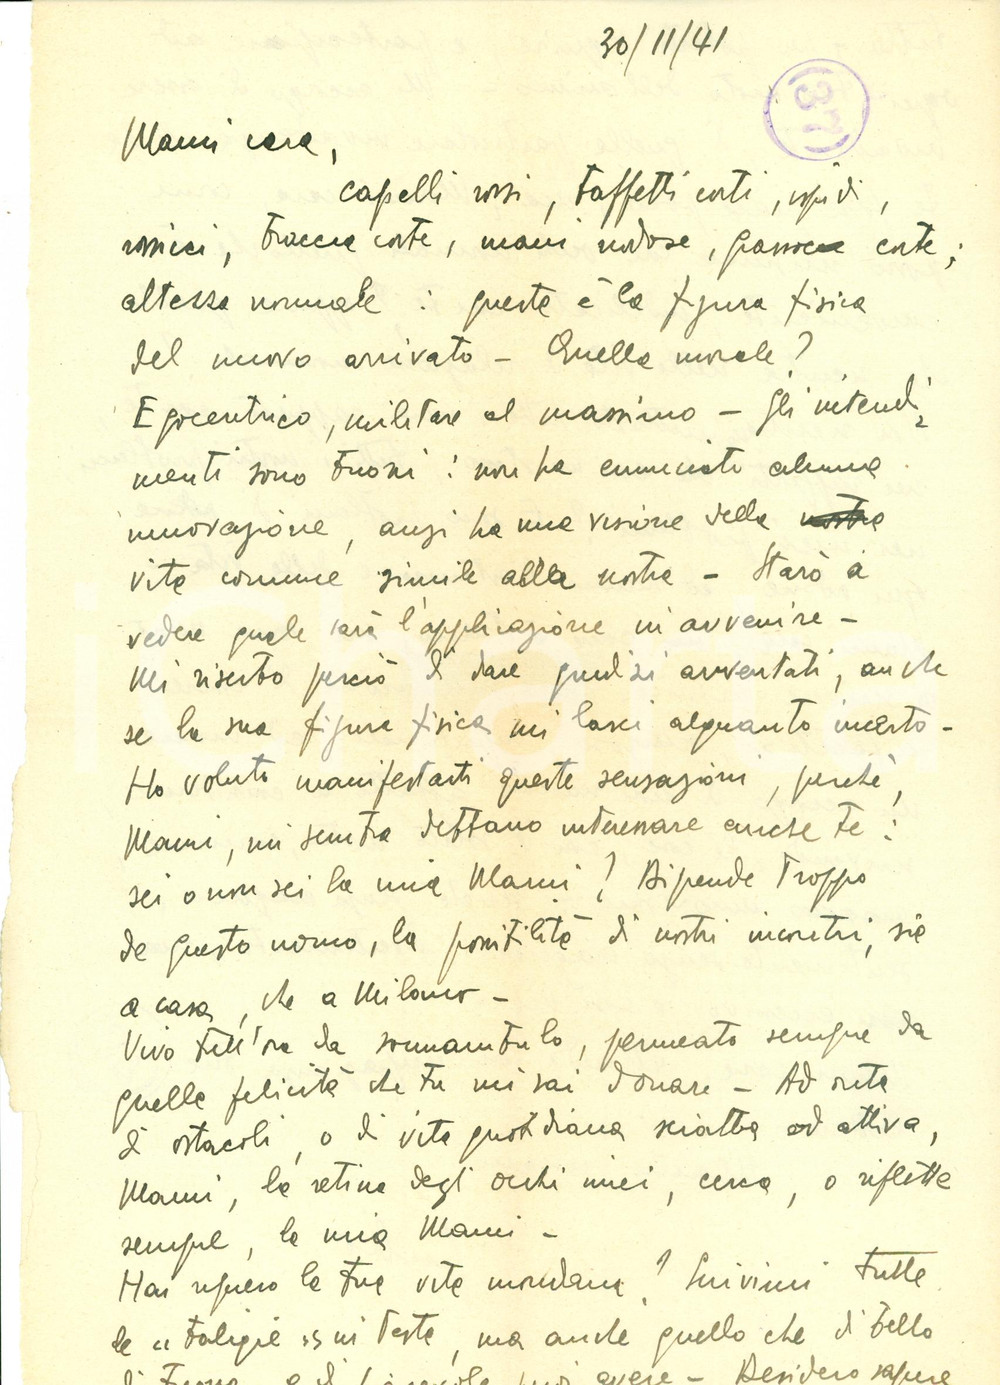 30/11/41
(37)
Mami cara,
capelli rossi, baffetti corti, ispidi,
rossicci, braccia corte, mani nodose, gambe corte;
altezza normale : questa è la figura fisica
del nuovo arrivato – Quella morale?
Egocentrico, militare al massimo – Gli intendi
menti sono buoni : non ha enunciato alcuna
innovazione, anzi ha una visione della nostra
vita comune simile alla nostra – Starò a
vedere quale sarà l'applicazione in avvenire –
Mi riserbo perciò di dare giudizi avventati, anche
se la sua figura fisica mi lasci alquanto incerto –
Ho voluto manifestarti queste sensazioni, perchè,
Mami, mi sembra debbano interessare anche te :
sei o non sei la mia Mami? Dipende troppo
da questo uomo, la possibilità di nostri incontri, sia
a casa, che a Milano –
Vivo tutt'ora da sonnambulo, permeato sempre da
quella felicità che tu mi sai donare – Ad onta
di ostacoli, o di vita quotidiana sciatta od attiva,
Mami, la retina degli occhi miei, cerca, o riflette
sempre, la mia Mami –
Hai ripreso la tua vita mondana? Scrivimi tutte
le " in testa, ma anche quello che di bello
di buono, e di può avere – Desidero sapere